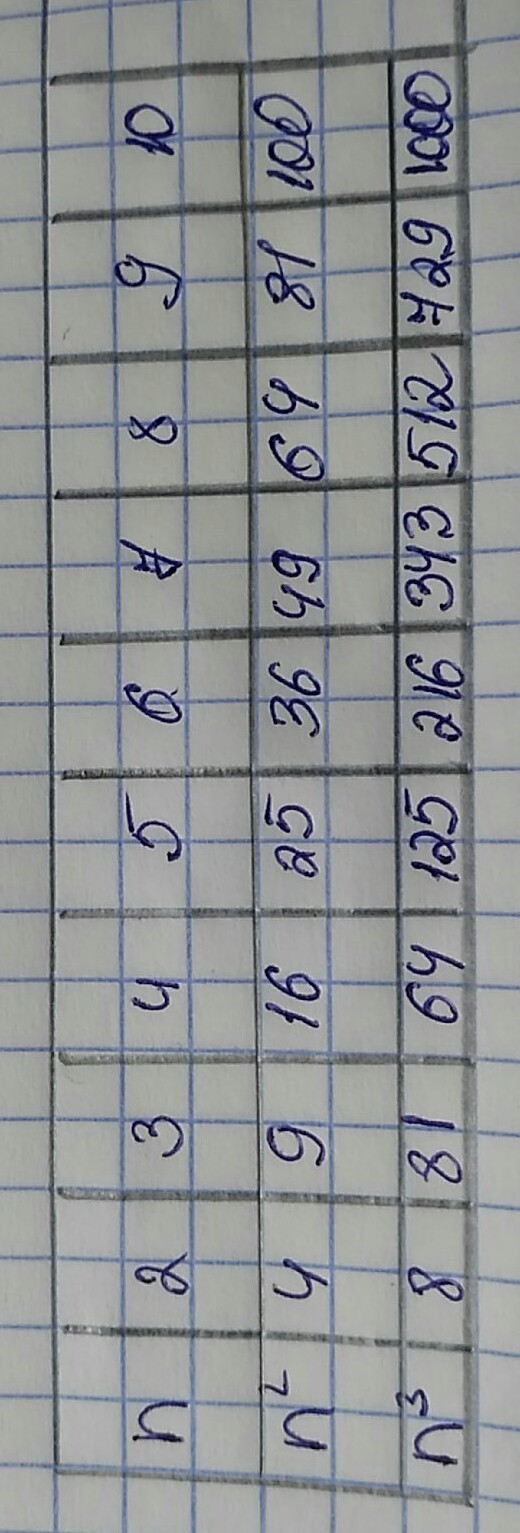 n 2 3 4 5 6 7 8 9 10
n² 4 9 16 25 36 49 64 81 100
n³ 8 81 64 125 216 343 512 729 1000